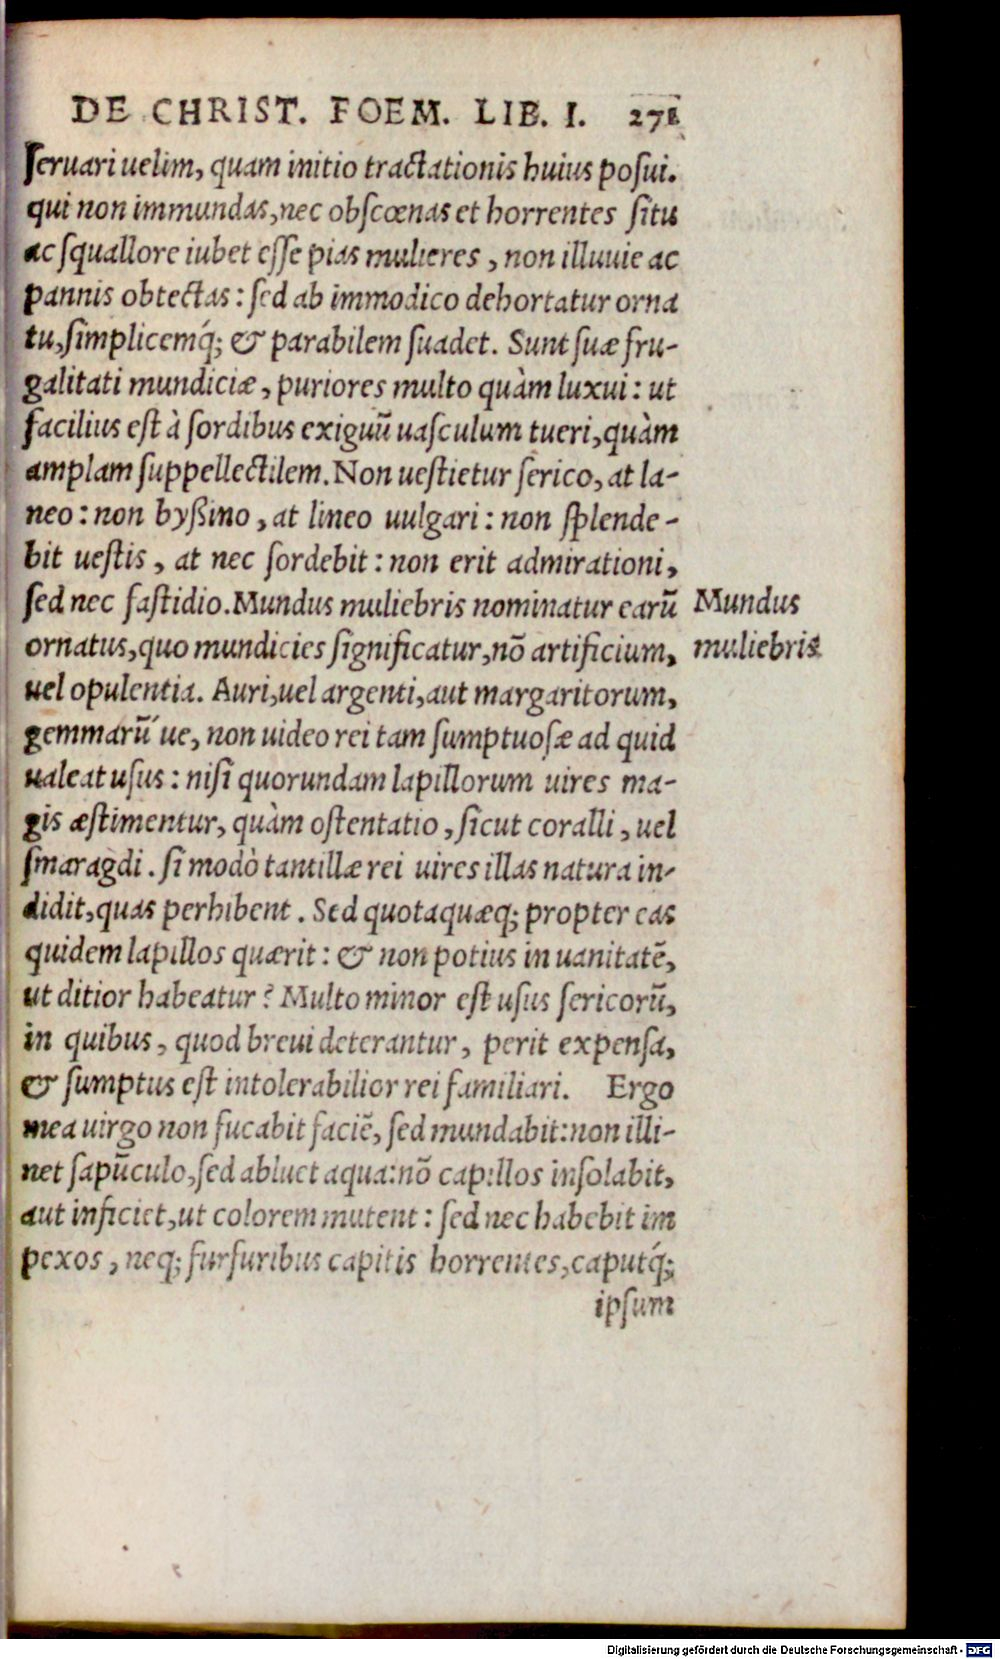 DE CHRIST. FOEM. LIB. I. 271
ſeruari uelim, quam initio tractationis huius poſui.
qui non immundas, nec obſcœnas et horrentes ſitu
ac ſquallore iubet eſſe pias mulieres, non illuuie ac
pannis obtectas: ſed ab immodico dehortatur orna
tu, ſimplicemq́; & parabilem ſuadet. Sunt ſuæ fru-
galitati mundiciæ, puriores multo quàm luxui: ut
facilius eſt à ſordibus exiguū uaſculum tueri, quàm
amplam ſuppellectilem. Non ueſtietur ſerico, at la-
neo: non byßino, at lineo uulgari: non ſplende-
bit ueſtis, at nec ſordebit: non erit admirationi,
ſed nec faſtidio. Mundus muliebris nominatur earū
ornatus, quo mundicies ſignificatur, nō artificium,
uel opulentia. Auri, uel argenti, aut margaritorum,
gemmarū ue, non uideo rei tam ſumptuoſæ ad quid
ualeat uſus: niſi quorundam lapillorum uires ma-
gis æſtimentur, quàm oſtentatio, ſicut coralli, uel
ſmaragdi. ſi modò tantillæ rei uires illas natura in-
didit, quas perhibent. Sed quotaquæq; propter eas
quidem lapillos quærit: & non potius in uanitatē,
ut ditior habeatur? Multo minor eſt uſus ſericorū,
in quibus, quod breui deterantur, perit expenſa,
& ſumptus eſt intolerabilior rei familiari. Ergo
mea uirgo non fucabit faciē, ſed mundabit: non illi-
net ſapūculo, ſed abluet aqua: nō capillos inſolabit,
aut inficiet, ut colorem mutent: ſed nec habebit im
pexos, neq; furfuribus capitis horrentes, caputq́;
ipſum
Mundus
muliebris
Digitalisierung gefördert durch die Deutsche Forschungsgemeinschaft - DFG